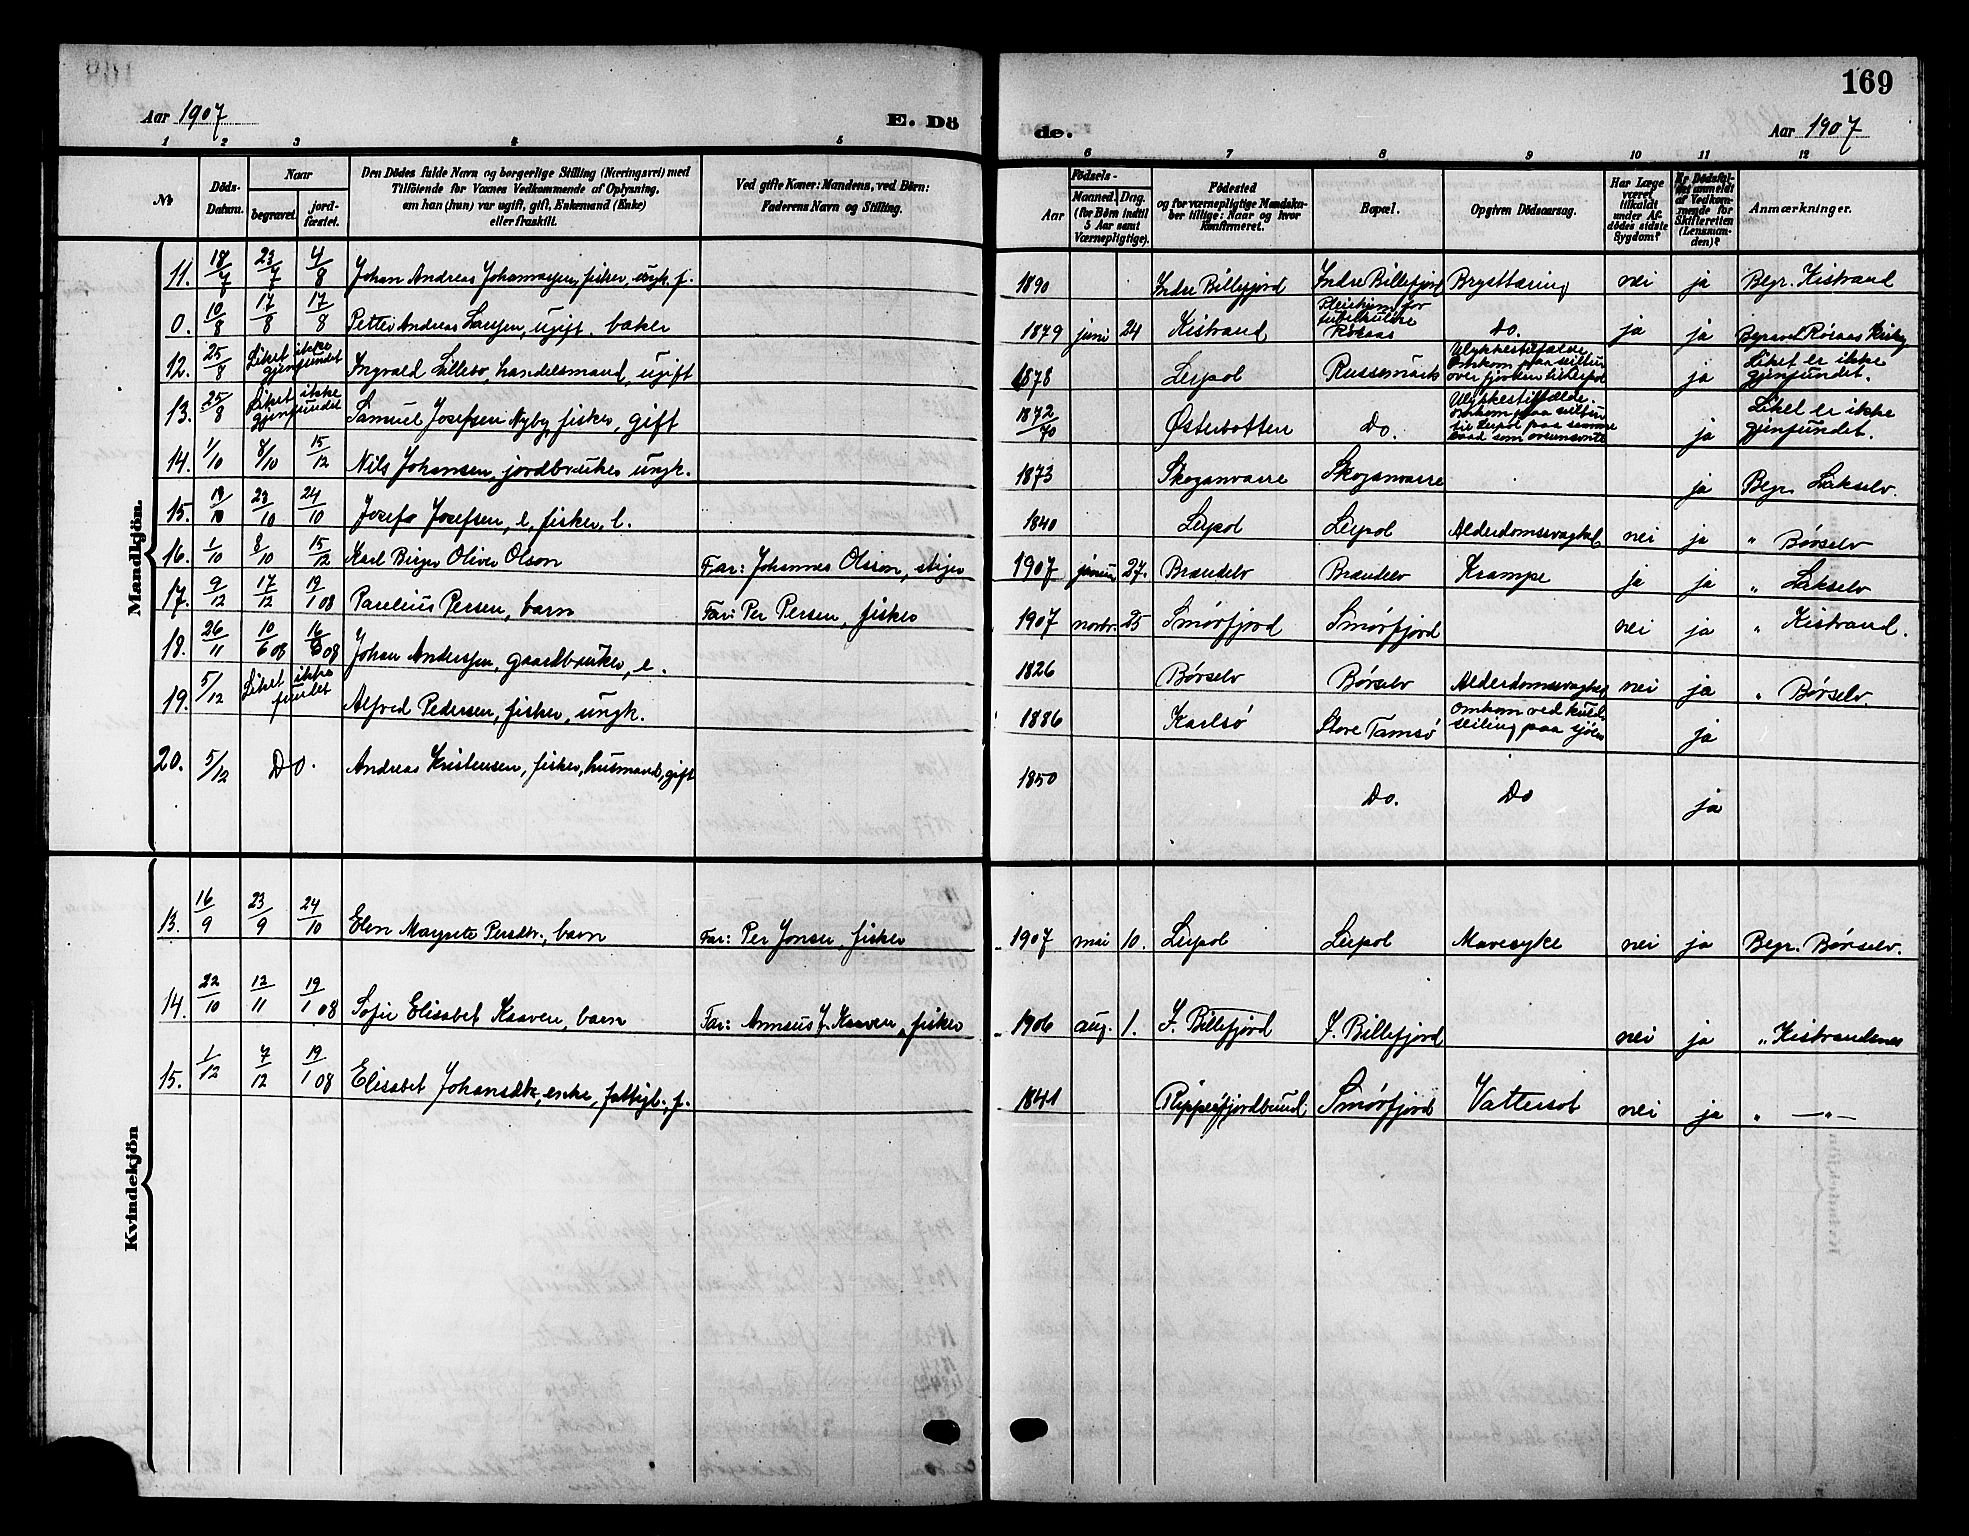 169
Aar 1907 E. Dö de. Aar 1907
1 2 3 4 5 6 7 8 9 10 11 12
No
Döds-Datum.
Naar
begravet.
jord-fæstet.
Den Dödes fulde Navn og borgerlige Stilling (Næringsvei) med
Tilföiende for Voxnes Vedkommende af Oplysning,
om han (hun) var ugift, gift, Enkemand (Enke)
eller fraskilt.
Ved gifte Koner: Mandens, ved Börn:
Faderens Navn og Stilling.
Födsels-
Aar
Maaned. Dag.
(for Börn indtil
5 Aar samt
Værnepligtige).
Födested
og for værnepligtige Mandska-
ber tillige: Naar og hvor
konfirmeret.
Bopæl.
Opgiven Dödsaarsag.
Har Læge
været
tilkaldt
under Af-
dödes sidste
Sygdom?
Er Dödsfal-
det anmeldt
af Vedkom-
mende for
Skifteretten
(Lensman-
den)?
Anmærkninger.
Mandkjön.
11. 18/7 23/7 4/8 Johan Andreas Johannessen, fisker, ungk. f. 1890 Indre Billefjord Indre Billefjord Brysttæring nei ja Begr. Kistrand
0. 10/8 17/8 17/8 Petter Andreas Larssen, ugift, baker 1879 juni 24 Kistrand Pleiehjem for tuberkuløse Røraas Do. ja ja Begravet Røraas
12. 25/8 Liket ikke gjenfundet Ingvald Lillebo, handelsmand, ugift 1878 Leipol Russemark Ulykkestilfælde. Omkom paa seiltur over fjorden til Leipol ja Liket er ikke gjenfundet.
13. 25/8 Liket ikke gjenfundet Samuel Josefsen Nyby, fisker, gift 1872/70 Østerbotten Do. Ulykkestilfælde. omkom paa seiltur til Leipol paa samme baad som ovennævnte ja Liket er ikke gjenfundet.
14. 1/10 8/10 15/12 Nils Johansen, jordbruker ungk. 1873 Skoganvarre Skoganvarre ja Begr. Lakselv.
15. 19/10 23/10 24/10 Josef Josefsen, e, fisker, l. 1840 Leipol Leipol Alderdomssvaghet nei ja " Børselv
16. 1/10 8/10 15/12 Karl Birger Oliver Olson Far: Johannes Olsson, stiger 1907 27. Brændelv Brændelv Krampe ja ja " Lakselv
17. 9/12 17/12 19/1 08 Paulius Persen, barn Far: Per Persen, fisker 1907 novbr. 25 Smørfjord Smørfjord nei ja " Kistrand.
18. 26/11 10/6 08 16/6 08 Johan Anderssen, gaardbruker, e. 1826 Børselv Børselv Alderdomssvaghet nei ja " Børselv.
19. 5/12 Liket ikke fundet Alfred Pedersen, fisker, ungk. 1886 Karlsø Store Tamsø Omkom ved kuldseiling paa sjøen ja
20. 5/12 Do. Andreas Kristensen, fisker, husmand, gift 1850 Do. Do ja
Kvindekjön
13. 16/9 23/9 24/10 Elen Margrete Persdtr., barn Far: Per Jonsen, fisker 1907 mai 10. Leipol Leipol Mavesyke nei ja Begr. Børselv.
14. 22/10 12/11 19/1 08 Sofie Elisabet Kaaven, barn Far: Anneus J. Kaaven, fisker 1906 aug. 1. I. Billefjord I. Billefjord nei ja " Kistrandnes
15. 1/12 7/12 19/1 08 Elisabet Johansdtr, enke, fattigl., f. 1841 Repperfjordbund Smørfjord Vattersot nei ja " — " —